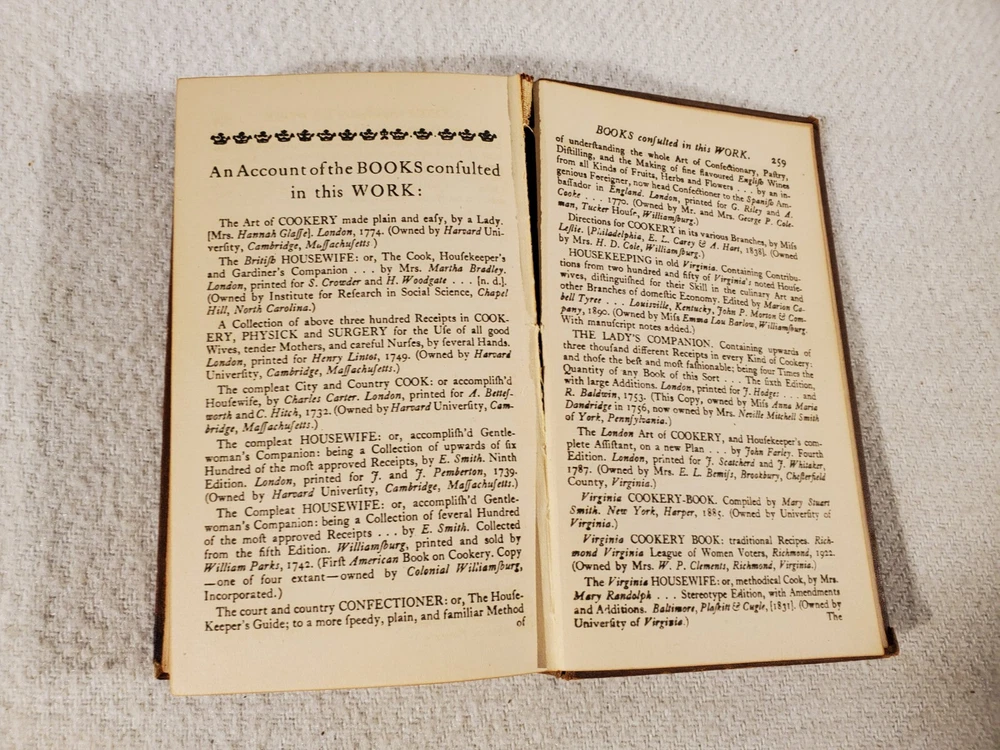 An Account of the BOOKS conſulted
in this WORK:
The Art of COOKERY made plain and eaſy, by a Lady.
[Mrs. Hannah Glaſſe]. London, 1774. (Owned by Harvard Uni-
verſity, Cambridge, Maſſachuſetts )
The Britiſh HOUSEWIFE: or, The Cook, Houſekeeper's
and Gardiner's Companion . . . by Mrs. Martha Bradley.
London, printed for S. Crowder and H. Woodgate . . . [n. d.].
(Owned by Inſtitute for Reſearch in Social Science, Chapel
Hill, North Carolina.)
A Collection of above three hundred Receipts in COOK-
ERY, PHYSICK and SURGERY for the Uſe of all good
Wives, tender Mothers, and careful Nurſes, by ſeveral Hands.
London, printed for Henry Lintot, 1749. (Owned by Harvard
Univerſity, Cambridge, Maſſachuſetts.)
The compleat City and Country COOK: or accompliſh'd
Houſewife, by Charles Carter. London, printed for A. Betteſ-
worth and C. Hitch, 1732. (Owned by Harvard Univerſity, Cam-
bridge, Maſſachuſetts.)
The compleat HOUSEWIFE: or, accompliſh'd Gentle-
woman's Companion: being a Collection of upwards of ſix
Hundred of the moſt approved Receipts, by E. Smith. Ninth
Edition. London, printed for J. and J. Pemberton, 1739.
(Owned by Harvard Univerſity, Cambridge, Maſſachuſetts.)
The Compleat HOUSEWIFE: or, accompliſh'd Gentle-
woman's Companion: being a Collection of ſeveral Hundred
of the moſt approved Receipts . . . by E. Smith. Collected
from the fifth Edition. Williamſburg, printed and sold by
William Parks, 1742. (Firſt American Book on Cookery. Copy
—one of four extant—owned by Colonial Williamſburg,
Incorporated.)
The court and country CONFECTIONER: or, The Houſe-
Keeper's Guide; to a more ſpeedy, plain, and familiar Method
of
BOOKS conſulted in this WORK. 259
of underſtanding the whole Art of Confectionary, Paſtry,
Diſtilling, and the Making of fine flavoured Engliſh Wines
from all Kinds of Fruits, Herbs and Flowers . . . by an in-
genious Foreigner, now head Confectioner to the Spaniſh Am-
baſſador in England. London, printed for G. Riley and A.
Cooke . . . 1770. (Owned by Mr. and Mrs. George P. Cole-
man, Tucker Houſe, Williamſburg.)
Directions for COOKERY in its various Branches, by Miſs
Leſlie. [Philadelphia, E. L. Carey & A. Hart, 1838]. (Owned
by Mrs. H. D. Cole, Williamſburg.)
HOUSEKEEPING in old Virginia. Containing Contribu-
tions from two hundred and fifty of Virginia's noted Houſe-
wives, diſtinguiſhed for their Skill in the culinary Art and
other Branches of domeſtic Economy. Edited by Marion Ca-
bell Tyree . . . Louiſville, Kentucky, John P. Morton & Com-
pany, 1890. (Owned by Miſs Emma Lou Barlow, Williamſburg.
With manuſcript notes added.)
THE LADY'S COMPANION. Containing upwards of
three thouſand different Receipts in every Kind of Cookery:
and thoſe the beſt and moſt faſhionable; being four Times the
Quantity of any Book of this Sort . . . The ſixth Edition,
with large Additions. London, printed for J. Hodges . . . and
R. Baldwin, 1753. (This Copy, owned by Miſs Anna Maria
Dandridge in 1756, now owned by Mrs. Neville Mitchell Smith
of York, Pennſylvania.)
The London Art of COOKERY, and Houſekeeper's com-
plete Aſſiſtant, on a new Plan . . . by John Farley. Fourth
Edition. London, printed for J. Scatcherd and J. Whitaker,
1787. (Owned by Mrs. E. L. Bemiſs, Brookbury, Cheſterfield
County, Virginia.)
Virginia COOKERY-BOOK. Compiled by Mary Stuart
Smith. New York, Harper, 1885. (Owned by Univerſity of
Virginia.)
Virginia COOKERY BOOK: traditional Recipes. Rich-
mond Virginia League of Women Voters, Richmond, 1922.
(Owned by Mrs. W. P. Clements, Richmond, Virginia.)
The Virginia HOUSEWIFE: or, methodical Cook, by Mrs.
Mary Randolph . . . Stereotype Edition, with Amendments
and Additions. Baltimore, Plaſkitt & Cugle, [1831]. (Owned by
Univerſity of Virginia.)
The